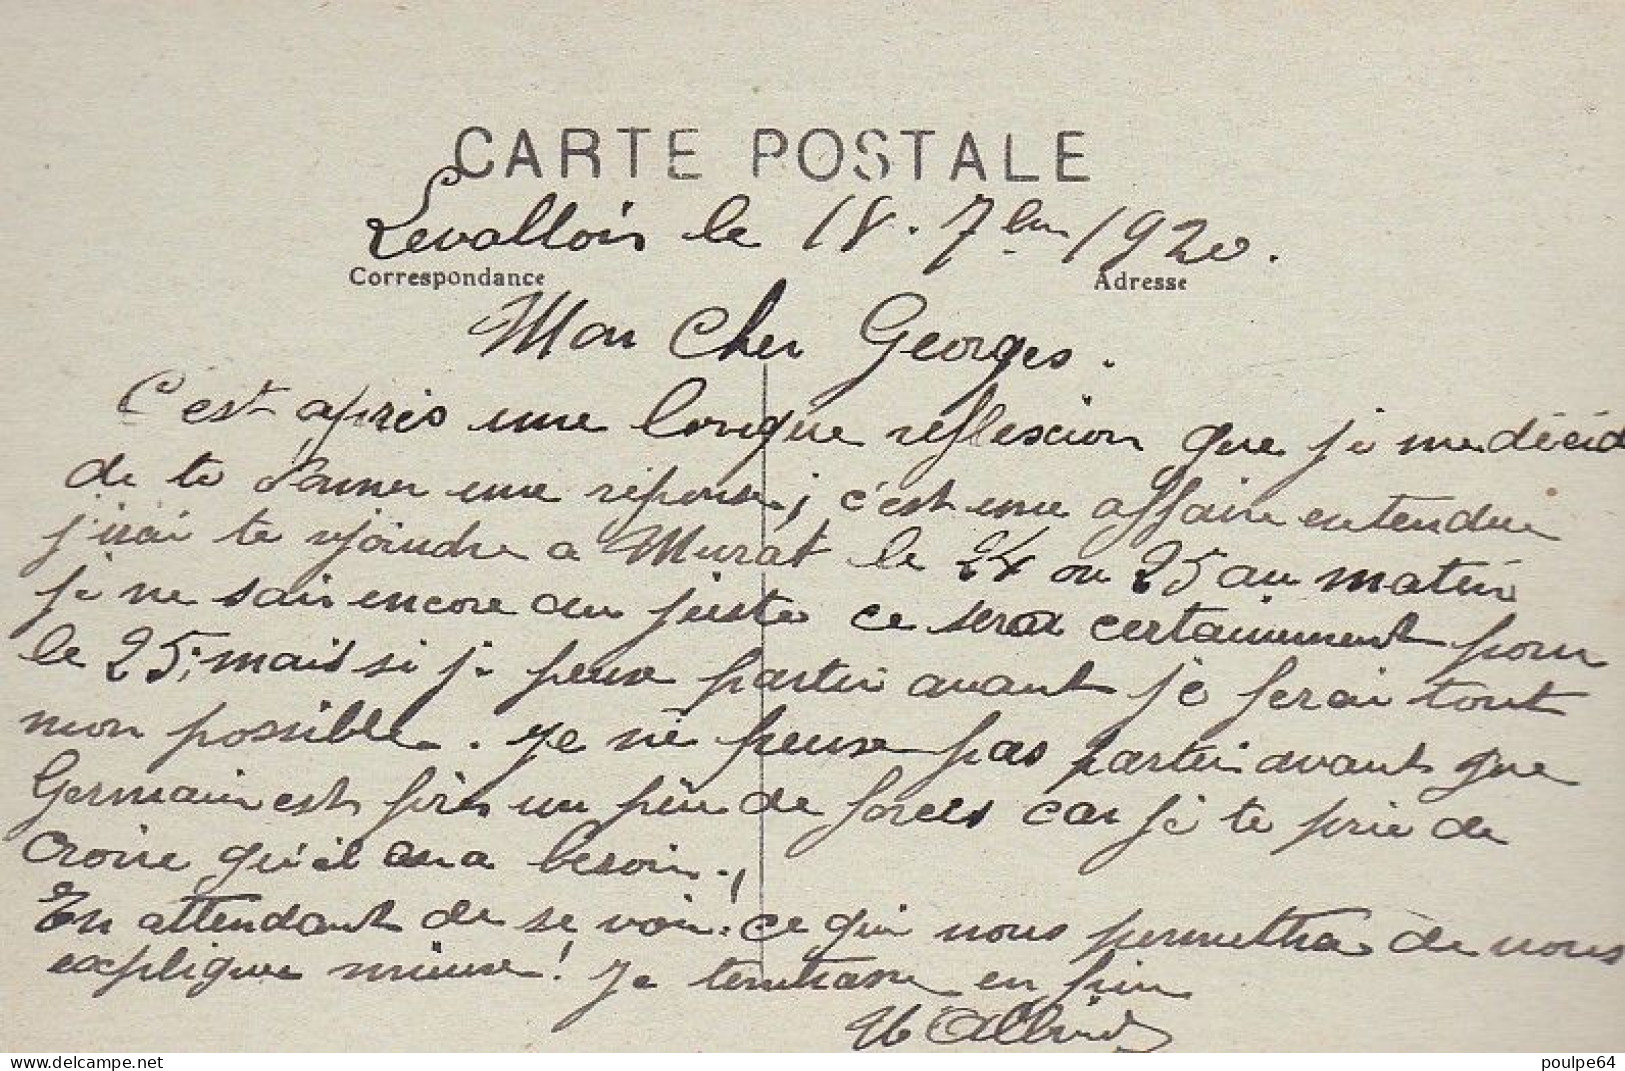 CARTE POSTALE
Levallois le 18. 7bre 1920.
Correspondance Adresse
Mon Cher Georges.
C'est après une longue reflexion que je me décid
de te donner une réponse, c'est une affaire entendue
j'irai te rejoindre a Murat le 24 ou 25 au matin
je ne sais encore au juste ce sera certainement pour
le 25, mais si je peux partir avant je ferai tout
mon possible. Je ne peux pas partir avant que
Germain est pris un peu de forces car je te prie de
croire qu'il en a besoin.,
En attendant de se voir! ce qui nous permettra de nous
explique mieux! Je t'embrasse en fin
delcampe.net poulpe64